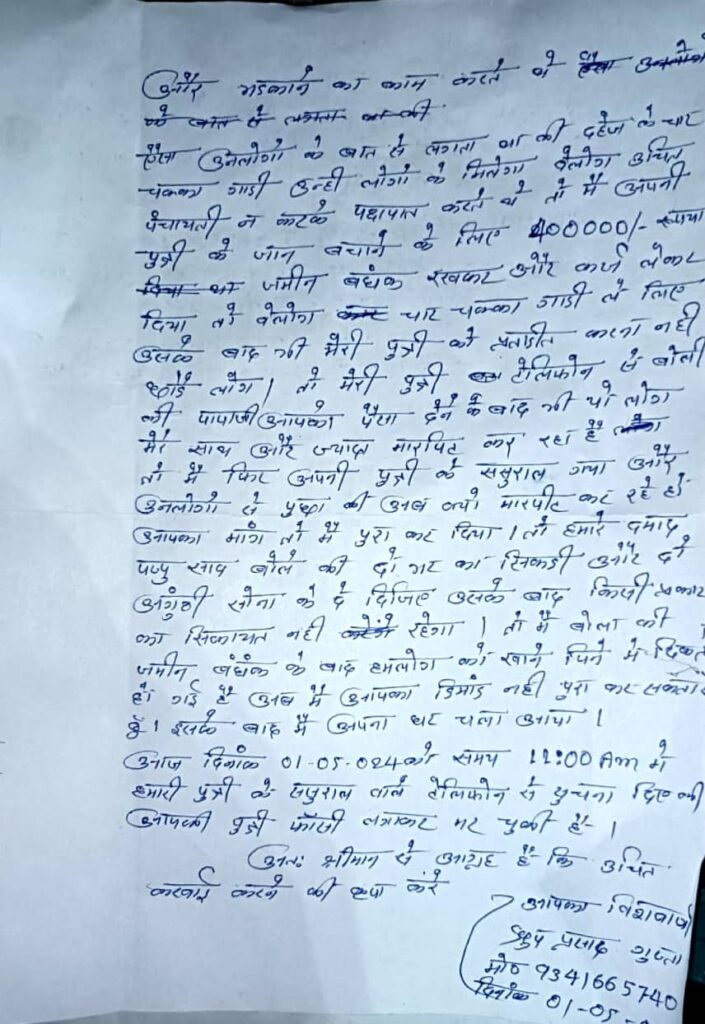 और भडकाने का काम करते थे ऐसा उनलोगो
के बात से लगता था की
ऐसा उनलोगो के बात से लगता था की दहेज के चार
चक्का गाडी उन्ही लोगो के मिलेगा वेलोग उचित
पंचायती न करके पक्षपात करते थे तो मै अपनी
पुत्री के जान बचाने के लिए 400000/- रूपया
दिया था जमीन बंधक रखकर और कर्ज लेकर
दिया तो वेलोग चार चक्का गाडी ले लिए
उसके बाद भी मेरी पुत्री को प्रताडीत करना नही
छोडे लोग। तो मेरी पुत्री टेलिफोन से बोली
की पापाजी आपका पैसा देने के बाद भी यो लोग
मेरे साथ और ज्यादा मारपिट कर रहा है
तो मै फिर अपनी पुत्री के ससुराल गया और
उनलोगो से पुछा की अब क्यो मारपीट कर रहे हो
आपका मांग तो मै पुरा कर दिया। तो हमारे दमाद
पप्पु साव बोले की दो भर का सिकडी और दो
अंगुठी सोना के दे दिजिए उसके बाद किसी प्रकार
का सिकायत नही रहेगा। तो मै बोला की
जमीन बंधक के बाद हमलोग को खाने पिने मे दिकत
हो गई है अब मै आपका डिमांड नही पुरा कर सकता
हूँ। इसके बाद मै अपना घर चला आया।
आज दिनांक 01-05-024 को समय 11:00 Am मे
हमारी पुत्री के ससुराल वाले टेलिफोन से सुचना दिए की
आपकी पुत्री फाँसी लगाकर मर चुकी है।
अतः श्रीमान से आग्रह है कि उचित
करवाई करने की कृपा करे
आपका विशवासी
प्रसाद गुप्ता
मो० 9341665740
दिनांक 01-05-